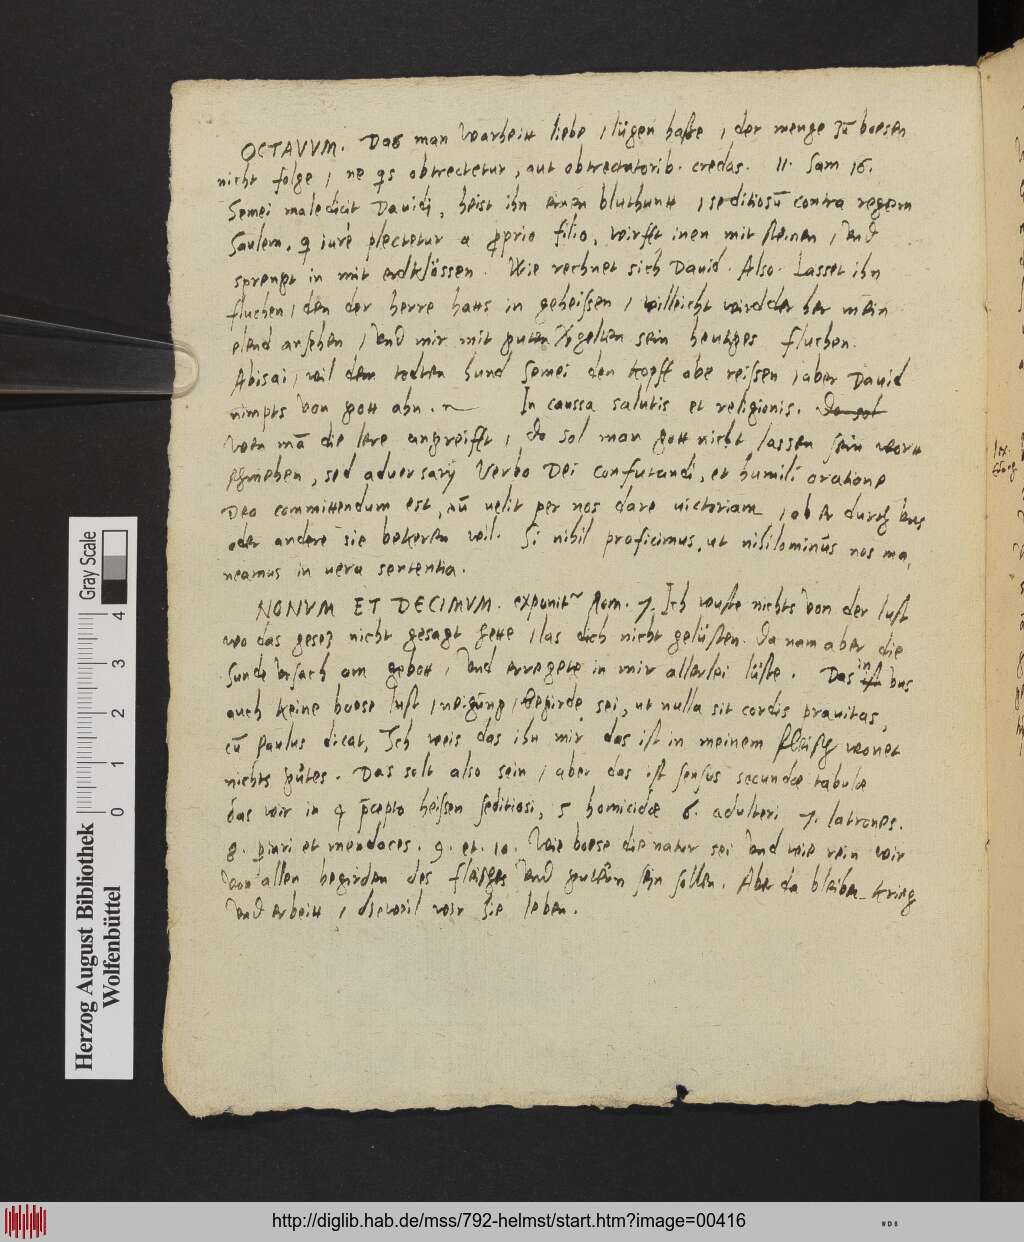 OCTAVVM. Das man warheitt liebe / lügen hasse / der menge zū boesen
nicht folge / ne qs obtrectetur, aut obtrectatorib. credas. II. Sam 16.
Semei maledicit Dauidi, heist ihn einen bluthuntt / seditiosū contra regem
Saulem, q iure plectetur a proprio filio, wirfft inen mit steinen / vnd
sprengt in mit erdklössen. Wie rechnet sich Dauid. Also. Lasset ihn
fluchen / den der herre hatts in geheissen / villeicht wird der her mein
elend ansehen / vnd mir mit guten vergelten sein heutiges fluchen.
Abisai / wil dem todten hund Semei den kopff abe reissen / aber Dauid
nimpts von gott ahn. In caussa salutis et religionis. Do sol
wen mā die lere angreifft / do sol man gott nicht lassen sein wort
schmehen, sed adversarij Verbo Dei confutandi, et humili oratione
Deo committendum est, nū uelit per nos dare uictoriam / ob er durch vns
oder andere sie bekeren wil. Si nihil proficimus, ut nihilominus nos ma,
neamus in uera sententia.
NONVM ET DECIMVM. exponit Rom. 7. Ich wuste nichts von der lust
wo das gesez nicht gesagt hette / las dich nicht gelüsten. Da nam aber die
Sunde vrsach am gebott / vnd erregete in mir allerlei lüste. Das ist in vns
auch keine boese lust / neigung / begirde sei, ut nulla sit cordis prauitas,
cū paulus dicat, Ich weis das ihn mir das ist in meinem fleisch wonet
nichts gutes. Das solt also sein / aber das ist sensus secundae tabulae
das wir in 4 pcepto heissen seditiosi, 5 homicidae 6. adulteri 7. latrones.
8. piuri et mendaces. 9. et. 10. Wie boese die natur sei vnd wie rein wir
von allen begirden des fleisches vnd sein sollen. Aber da bleibet krieg
vnd erbeitt / dieweil wir hie leben.
Herzog August Bibliothek
Wolfenbüttel
0 1 2 3 4
Gray Scale
http://diglib.hab.de/mss/792-helmst/start.htm?image=00416